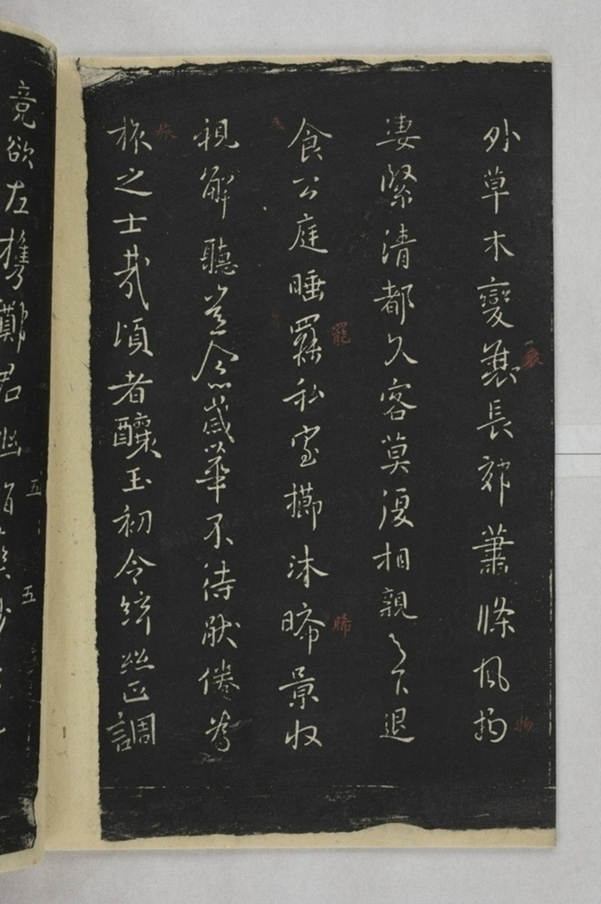 外草木變衰長郊蕭條風物
凄緊清都久客莫復相親下退
食公庭睡罷私室櫛沐晞景收
視解聽念歲華不待厭倦為
旅之士哉頃者釀玉初令絲正調
竟欲左攜鄭君幽
五
五
衰
物
罷
晞
旅